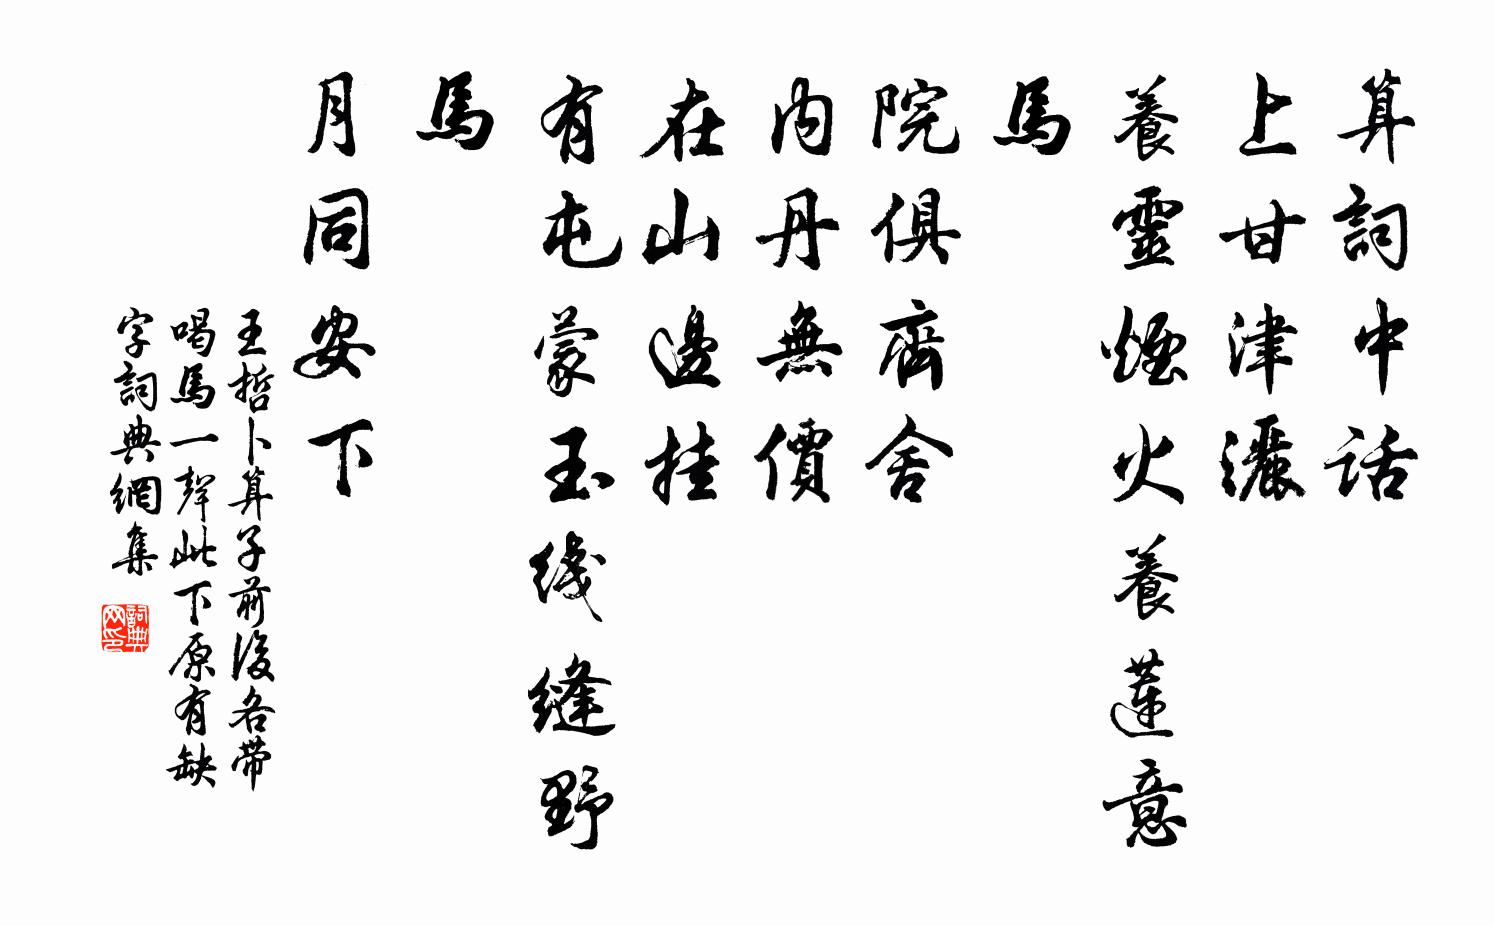 算詞中話
上甘津灑
養靈煙火養蓮意
馬
院俱齊舍
內丹無價
在山邊挂
有屯蒙玉线缝野
馬
月同安下
王哲卜算子前後各带
喝馬一聲此下原有缺
字詞典網集
詞典网印